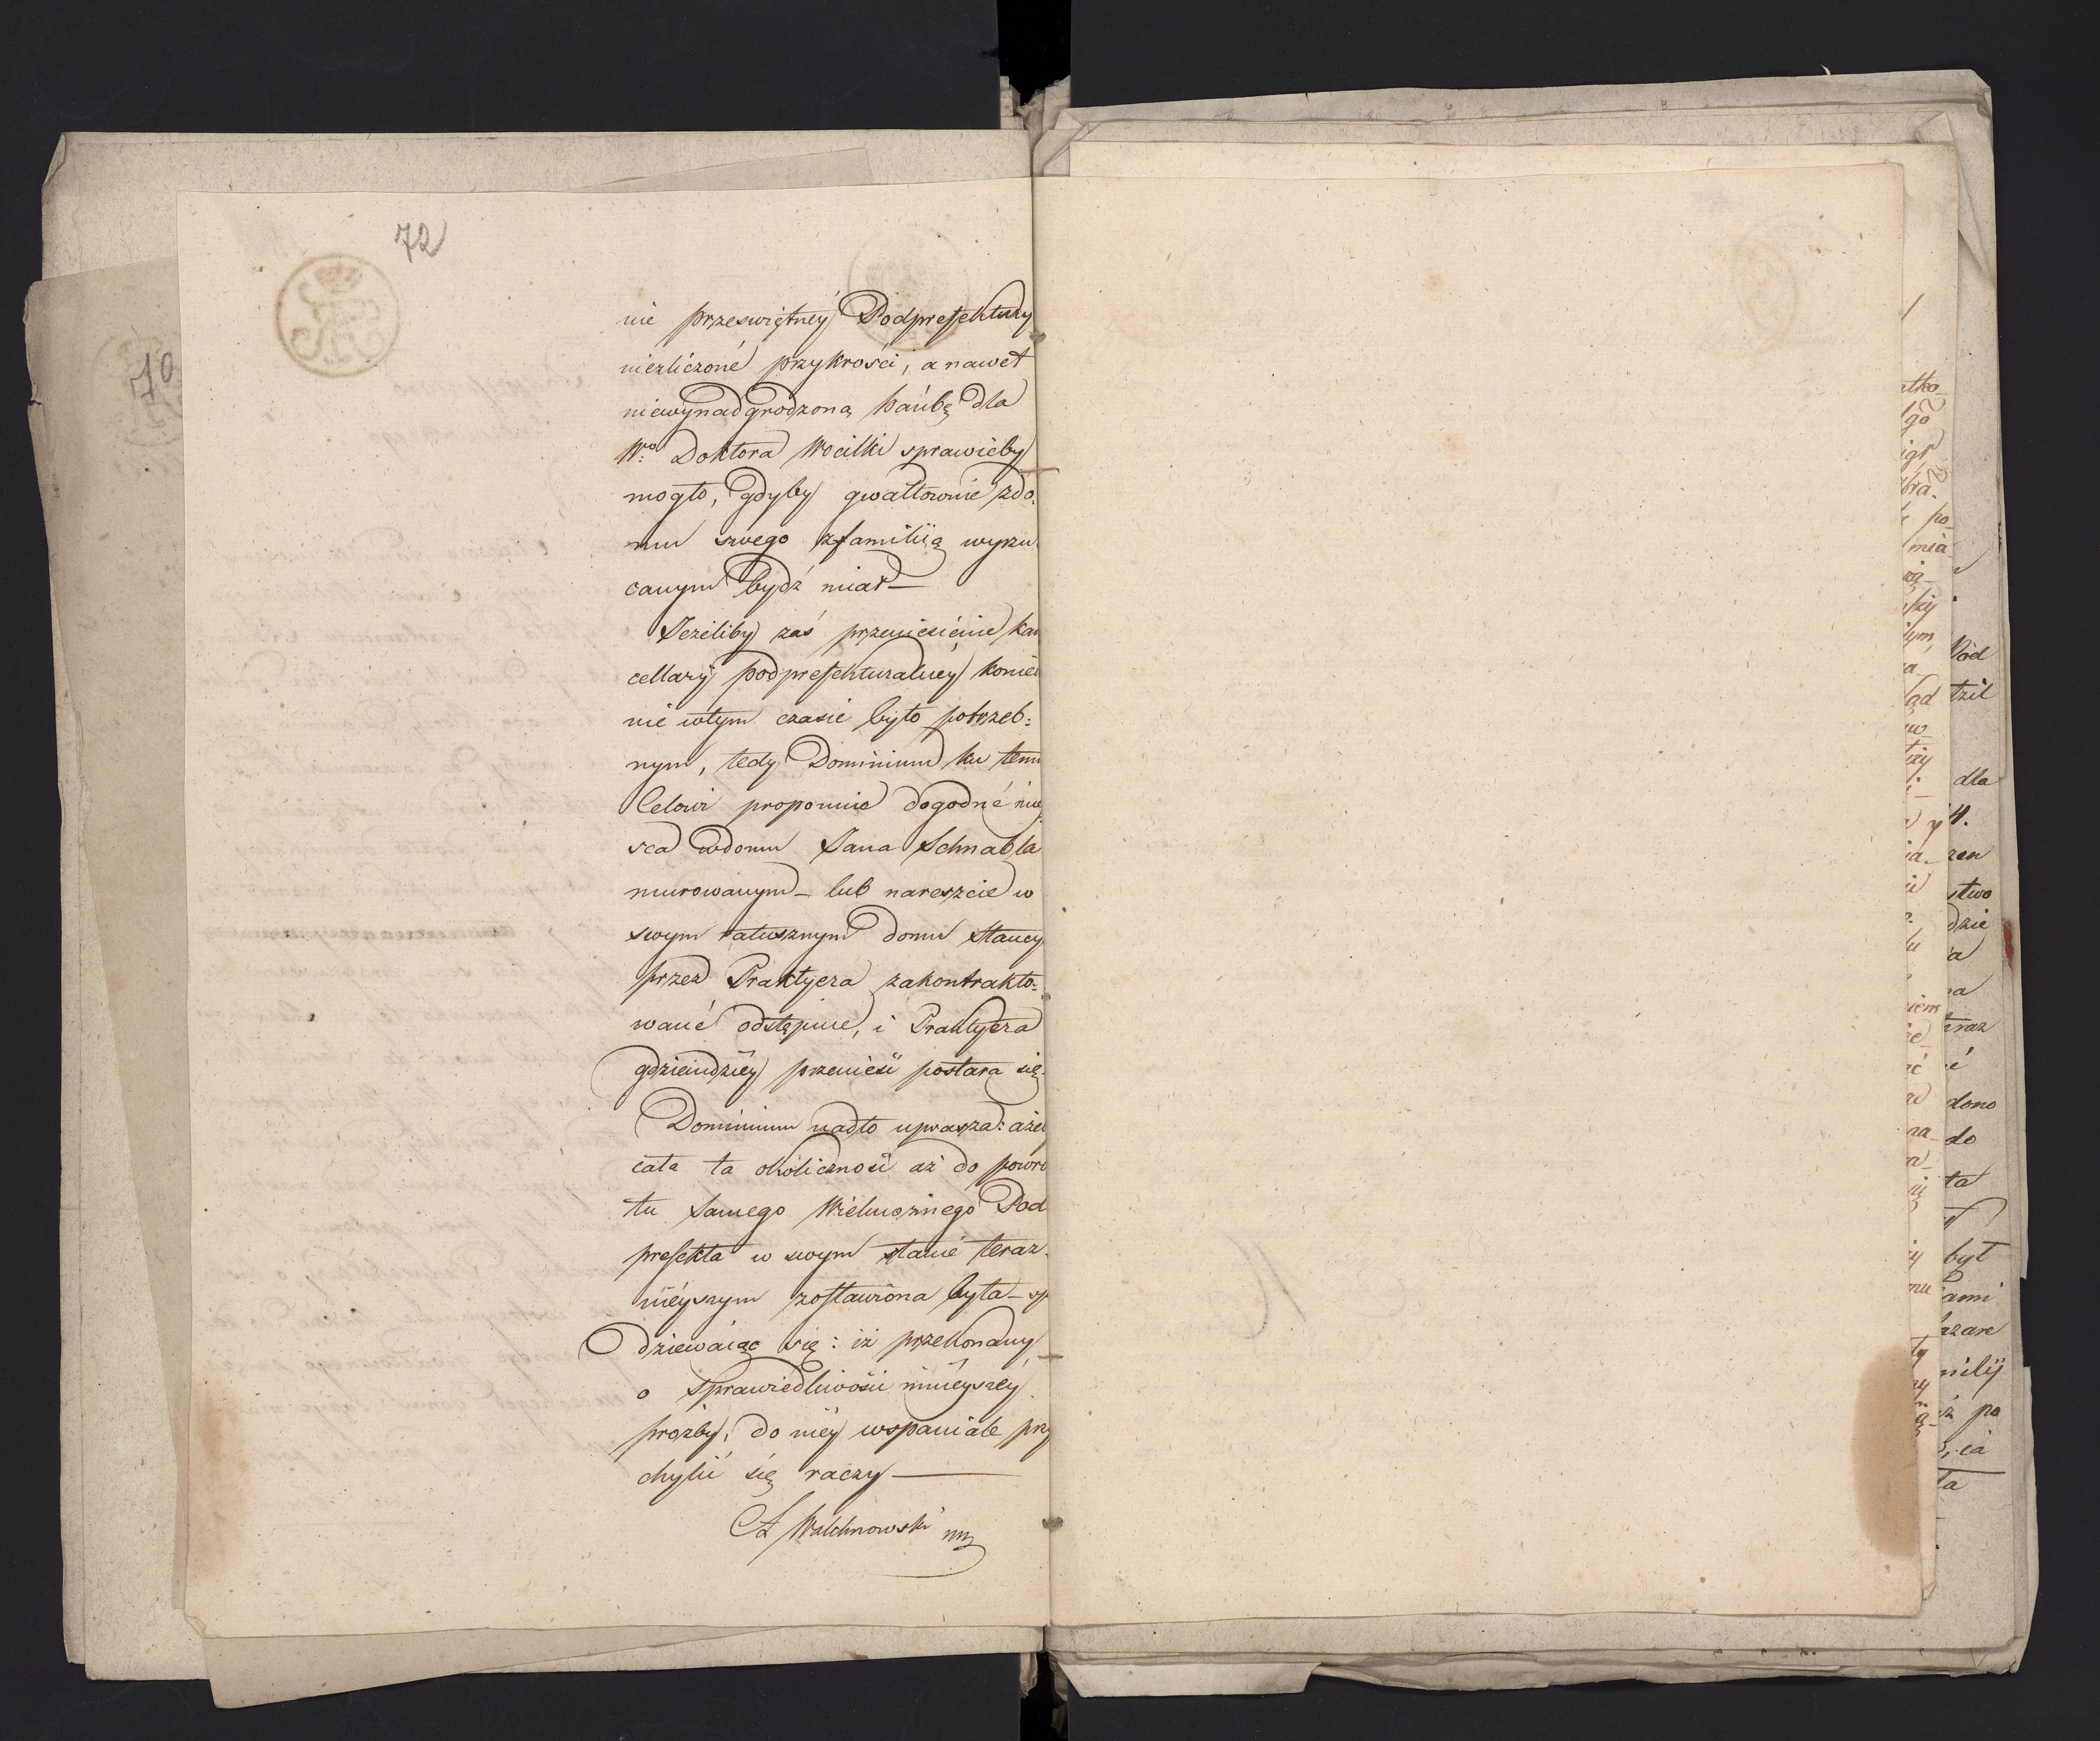 72
nie przeswiętney Podprefektury
niezliczoné przykrosci, a nawet
niewynadgrodzoną hańbę dla
Wo Doktora Wocilki sprawicby
mogło, gdyby gwałtownie zdo-
mu swego zfamiliią wyrzu
canym bydź miał —
Jeżeliby zaś przeniesienie kan
cellaryi podprefekturalney koniec
nie wtym czasie było potrzeb:
nym, tedy Dominium ku temu
Celowi proponuie dogodné miey
sca wdomu Jana Schnabla
murowanym — lub nareszcie w
swym ratusznym domu Stancy
przez Traktyera zakontrakto:
wané odstąpiné, i Traktyera
gdzieindziey przenieść postara się.
Dominium nadto uprasza: ażeb
cała ta okoliczność aż do powro
tu Samego Wielmożnego Pod
prefekta w swym stanie teraz-
nieyszym zostawiona była — sp
dziewaiąc się: iż przekonany
o sprawiedliwości ninieyszey
prozby, do niéy wspaniale przy
chylić się raczy —
A Walchnowski mp
70
atko
go
bra.
po
mia
Vód
tził
dla
zen
stwo
dzie
a
na
teraz
dono
do
ta
był
ami
kazane
milij
po
ta